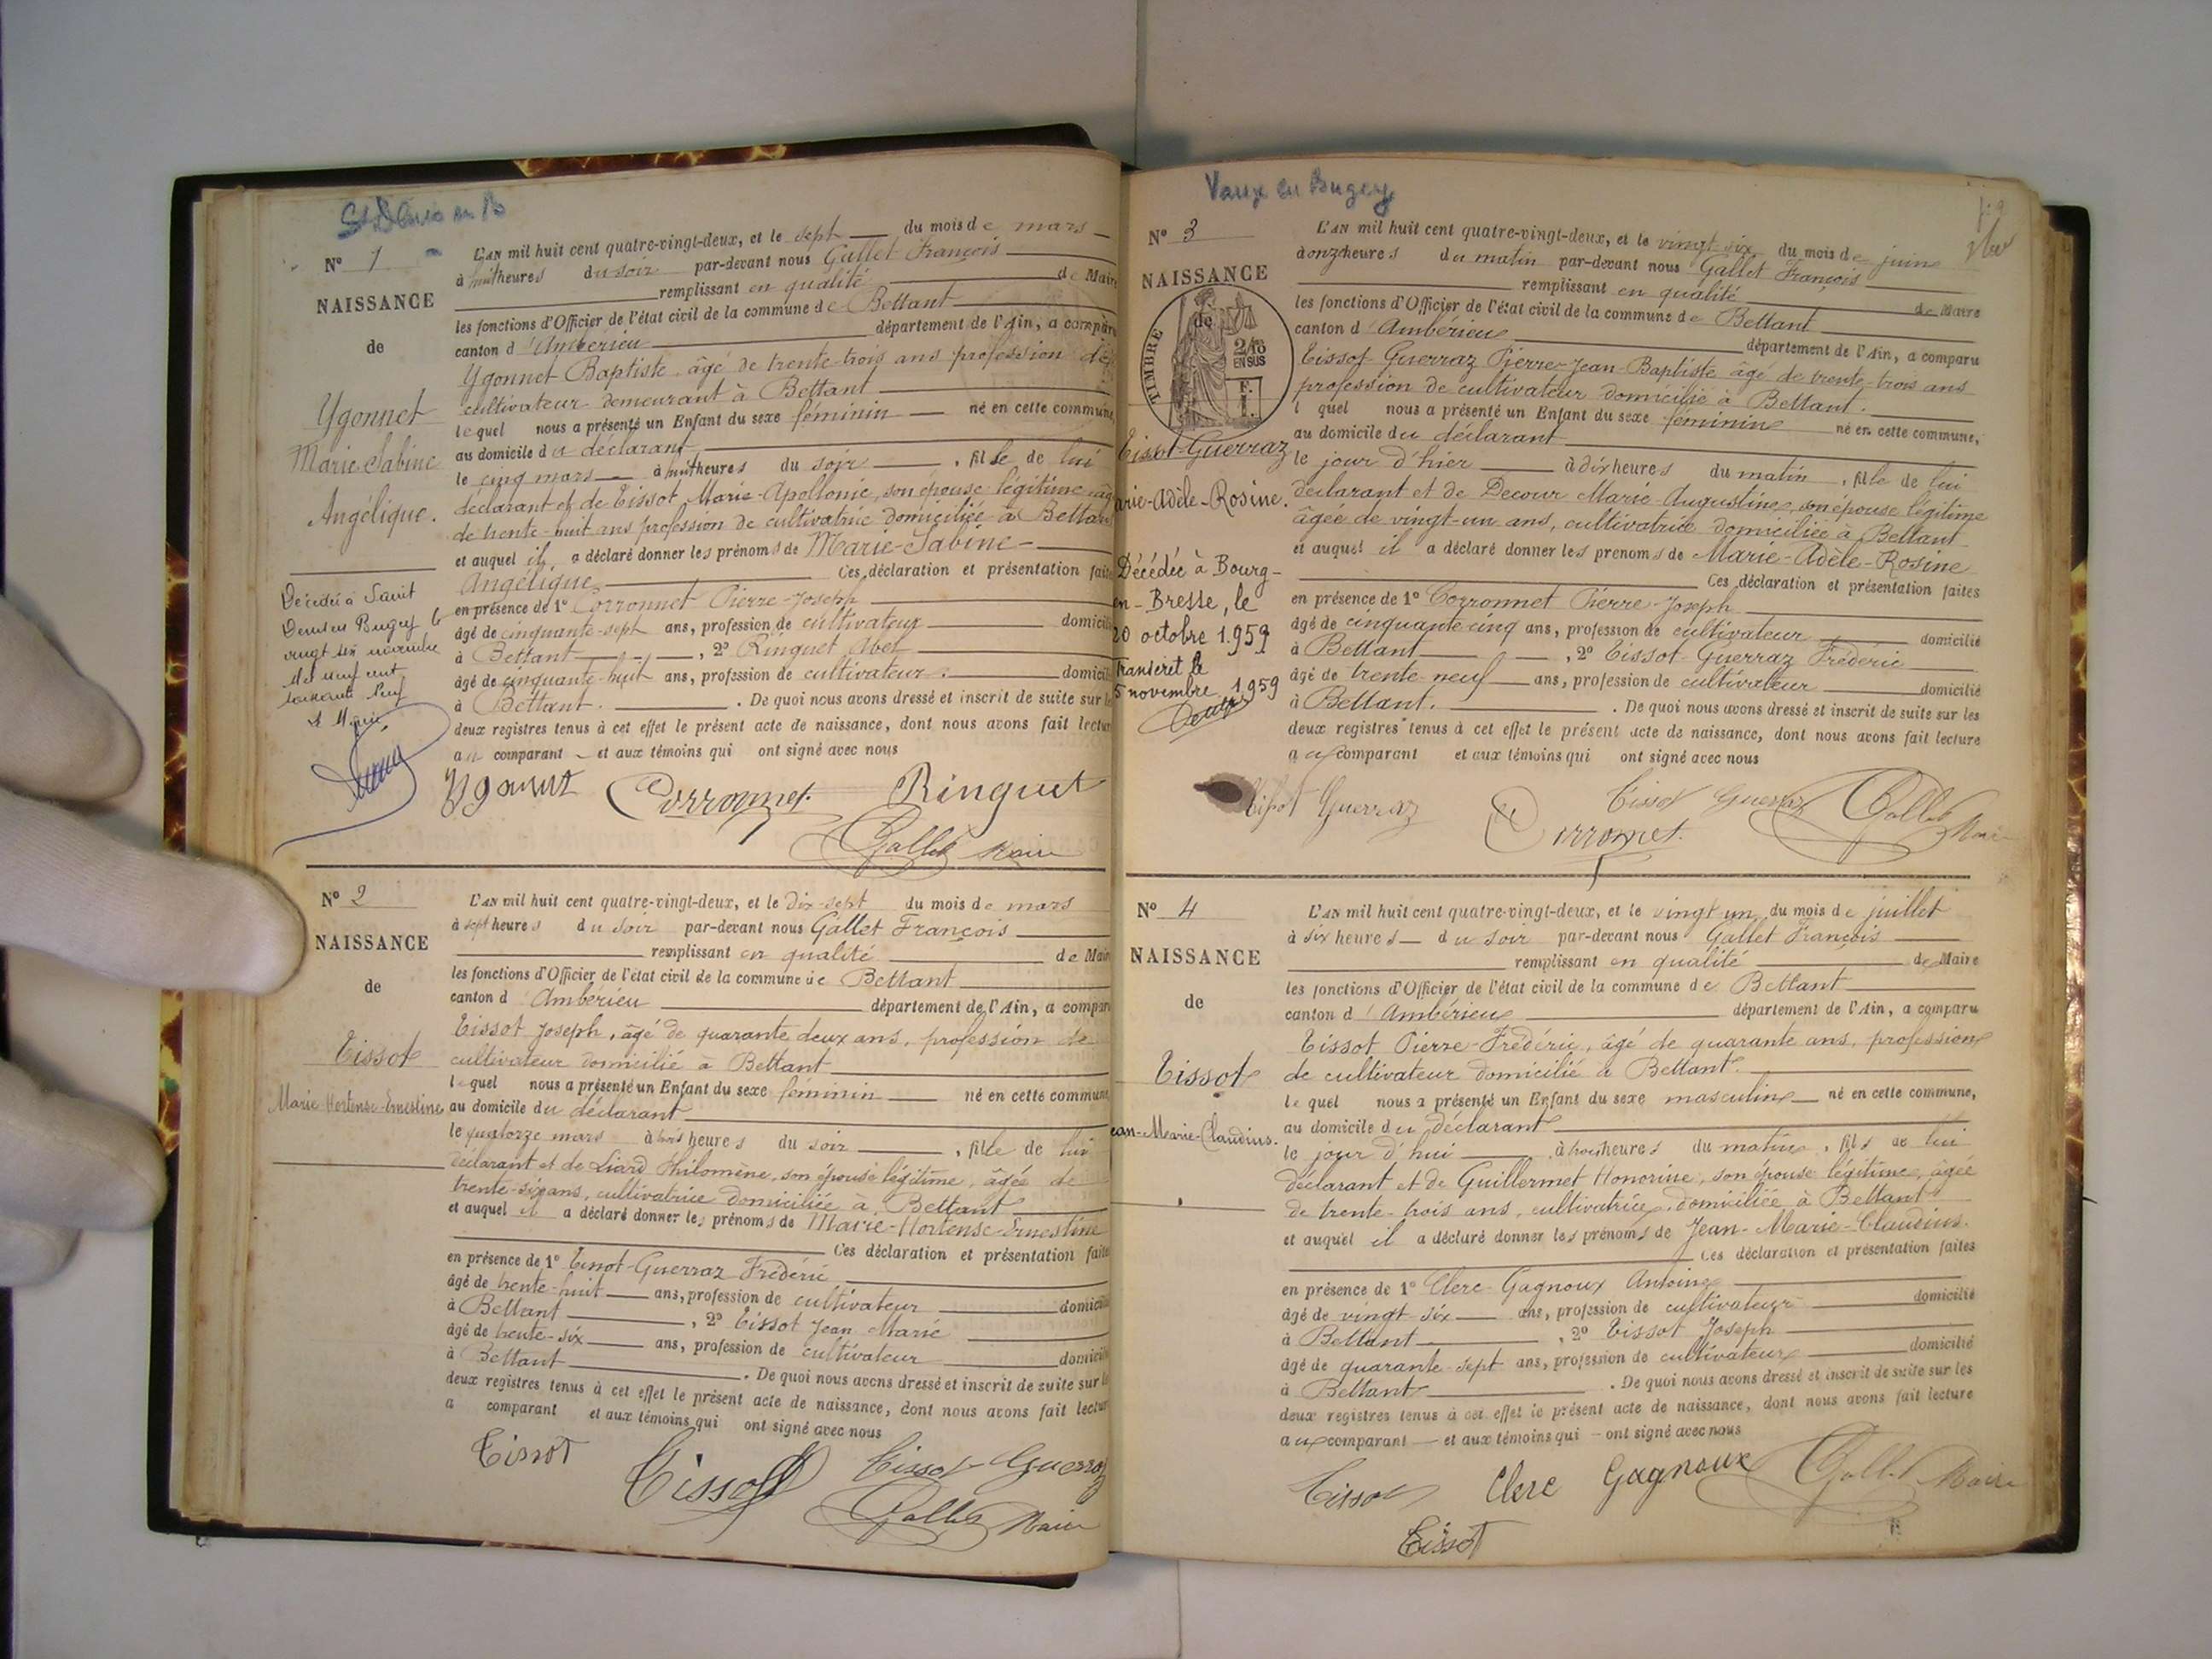 St Denis en B
Nº 1
NAISSANCE
de
Ygonnet
Marie Sabine
Angélique.
Décédée à Saint
Denis en Bugey le
vingt six novembre
mil neuf cent
soixante neuf
L'AN mil huit cent quatre-vingt-deux, et le sept du mois de mars
à huit heures du soir par-devant nous Gallet François
remplissant en qualité de Maire
les fonctions d'Officier de l'état civil de la commune de Bettant
canton d'Ambérieu département de l'Ain, a comparu
Ygonnet Baptiste, âgé de trente-trois ans profession de
cultivateur demeurant à Bettant
lequel nous a présenté un Enfant du sexe féminin né en cette commune,
au domicile du déclarant
le cinq mars à huit heures du soir, fille de lui
déclarant et de Tissot Marie-Apollonie, son épouse légitime âgée
de trente-huit ans profession de cultivatrice domiciliée à Bettant
et auquel il a déclaré donner les prénoms de Marie-Sabine-
Angélique Ces déclaration et présentation faites
en présence de 1º Corronnet Pierre-Joseph
âgé de cinquante-sept ans, profession de cultivateur domicilié
à Bettant, 2º Ringuet Abel
âgé de cinquante-huit ans, profession de cultivateur. domicilié
à Bettant. De quoi nous avons dressé et inscrit de suite sur les
deux registres tenus à cet effet le présent acte de naissance, dont nous avons fait lecture
au comparant et aux témoins qui ont signé avec nous
Ygonnet Corronnet. Ringuet
Gallet Maire
Nº 2
NAISSANCE
de
Tissot
Marie-Hortense-Ernestine
L'AN mil huit cent quatre-vingt-deux, et le dix-sept du mois de mars
à sept heures du soir par-devant nous Gallet François
remplissant en qualité de Maire
les fonctions d'Officier de l'état civil de la commune de Bettant
canton d'Ambérieu département de l'Ain, a comparu
Tissot Joseph, âgé de quarante deux ans, profession de
cultivateur domicilié à Bettant
lequel nous a présenté un Enfant du sexe féminin né en cette commune,
au domicile du déclarant
le quatorze mars à trois heures du soir, fille de lui
déclarant et de Liard Philomène, son épouse légitime, âgée de
trente-six ans, cultivatrice domiciliée à Bettant
et auquel il a déclaré donner les prénoms de Marie-Hortense-Ernestine
Ces déclaration et présentation faites
en présence de 1º Tissot-Guerraz Frédéric
âgé de trente-huit ans, profession de cultivateur domicilié
à Bettant, 2º Tissot Jean Marie
âgé de trente-six ans, profession de cultivateur domicilié
à Bettant. De quoi nous avons dressé et inscrit de suite sur les
deux registres tenus à cet effet le présent acte de naissance, dont nous avons fait lecture
a comparant et aux témoins qui ont signé avec nous
Tissot Tissot Tissot-Guerraz
Gallet Maire
Vaux en Bugey
Nº 3
NAISSANCE
de
TIMBRE
2/10
EN SUS
Tissot-Guerraz
Marie-Adèle-Rosine.
Décédée à Bourg-
en-Bresse, le
20 octobre 1959
Transcrit le
5 novembre 1959
L'AN mil huit cent quatre-vingt-deux, et le vingt six du mois de juin
à onze heures du matin par-devant nous Gallet François
remplissant en qualité de Maire
les fonctions d'Officier de l'état civil de la commune de Bettant
canton d'Ambérieu département de l'Ain, a comparu
Tissot Guerraz Pierre-Jean-Baptiste âgé de trente-trois ans
profession de cultivateur domicilié à Bettant.
lequel nous a présenté un Enfant du sexe féminin né en cette commune,
au domicile du déclarant
le jour d'hier à dix heures du matin, fille de lui
déclarant et de Decour Marie-Augustine, son épouse légitime
âgée de vingt-un ans, cultivatrice domiciliée à Bettant
et auquel il a déclaré donner les prénoms de Marie-Adèle-Rosine
Ces déclaration et présentation faites
en présence de 1º Corronnet Pierre-Joseph
âgé de cinquante-cinq ans, profession de cultivateur domicilié
à Bettant, 2º Tissot-Guerraz Frédéric
âgé de trente-neuf ans, profession de cultivateur domicilié
à Bettant. De quoi nous avons dressé et inscrit de suite sur les
deux registres tenus à cet effet le présent acte de naissance, dont nous avons fait lecture
au comparant et aux témoins qui ont signé avec nous
Tissot Guerraz Tissot Guerraz Gallet Maire
Corronnet.
Nº 4
NAISSANCE
de
Tissot
Jean-Marie-Claudius.
L'AN mil huit cent quatre-vingt-deux, et le vingt un du mois de juillet
à six heures du soir par-devant nous Gallet François
remplissant en qualité de Maire
les fonctions d'Officier de l'état civil de la commune de Bettant
canton d'Ambérieu département de l'Ain, a comparu
Tissot Pierre-Frédéric, âgé de quarante ans, profession
de cultivateur domicilié à Bettant.
lequel nous a présenté un Enfant du sexe masculin né en cette commune,
au domicile du déclarant
le jour d'hui à trois heures du matin, fils de lui
déclarant et de Guillermet Honorine, son épouse légitime, âgée
de trente-trois ans, cultivatrice, domiciliée à Bettant
et auquel il a déclaré donner les prénoms de Jean-Marie-Claudius.
Ces déclaration et présentation faites
en présence de 1º Clerc-Gagnoux Antoine
âgé de vingt-six ans, profession de cultivateur domicilié
à Bettant, 2º Tissot Joseph
âgé de quarante-sept ans, profession de cultivateur domicilié
à Bettant. De quoi nous avons dressé et inscrit de suite sur les
deux registres tenus à cet effet le présent acte de naissance, dont nous avons fait lecture
au comparant et aux témoins qui ont signé avec nous
Tissot Clerc Gagnoux Gallet Maire
Tissot